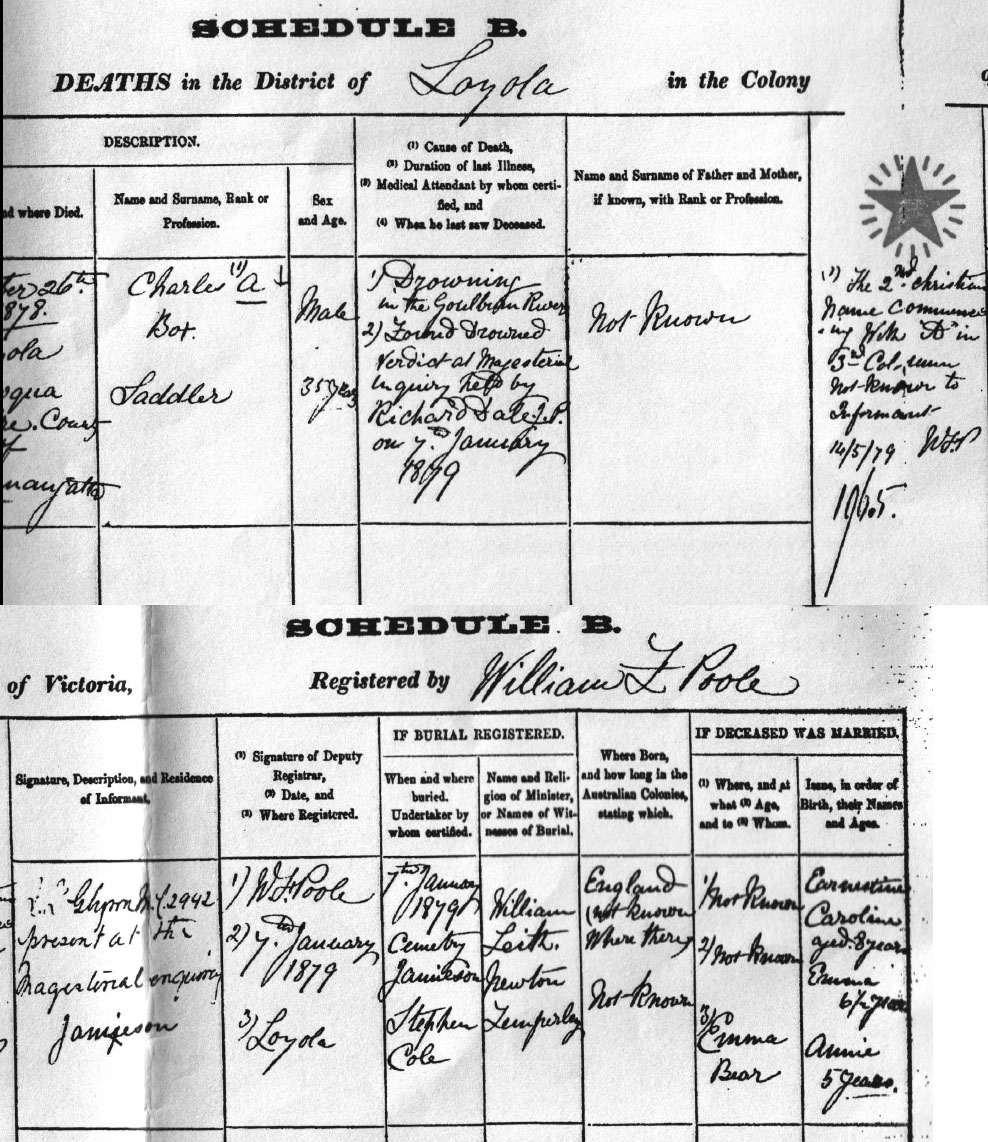 SCHEDULE B.
DEATHS in the District of Loyola in the Colony
DESCRIPTION.
nd where Died.
Name and Surname, Rank or
Profession.
Sex
and Age.
(1) Cause of Death,
(2) Duration of last Illness,
(3) Medical Attendant by whom certi-
fied, and
(4) When he last saw Deceased.
Name and Surname of Father and Mother,
if known, with Rank or Profession.
ber 26th
1878.
ola
oqua
re. Court
Charles (1) A
Box
Saddler
Male
35 years
1) Drowning
in the Goulburn River
2) Found Drowned
Verdict at Magesterial
Inquiry held by
Richard Dale J.P.
on 7th January
1879
Not Known
(1) The 2nd christian
Name commenc
ing With "A" in
3rd Column
Not Known to
Informant
14/5/79 WFP
SCHEDULE B.
of Victoria, Registered by William F Poole
Signature, Description, and Residence
of Informant.
(1) Signature of Deputy
Registrar,
(2) Date, and
(3) Where Registered.
IF BURIAL REGISTERED.
When and where
buried.
Undertaker by
whom certified.
Name and Reli-
gion of Minister,
or Names of Wit-
nesses of Burial.
Where Born,
and how long in the
Australian Colonies,
stating which.
IF DECEASED WAS MARRIED.
(1) Where, and at
what (2) Age,
and to (3) Whom.
Issue, in order of
Birth, their Names
and Ages.
Glynn M.C. 2942
present at the
Magesterial enquiry
Jamieson
1) W F Poole
2) 7th January
1879
3) Loyola
7th January
1879
Cemetry
Jamieson
Stephen
Cole
William
Leith.
Newton
Temperley
England
(not known
Where there)
Not Known
1) Not Known
2) Not Known
3) Emma
Bear
Earnestine
Caroline
aged. 8 years
Emma
6 1/2 years
Annie
5 Years.